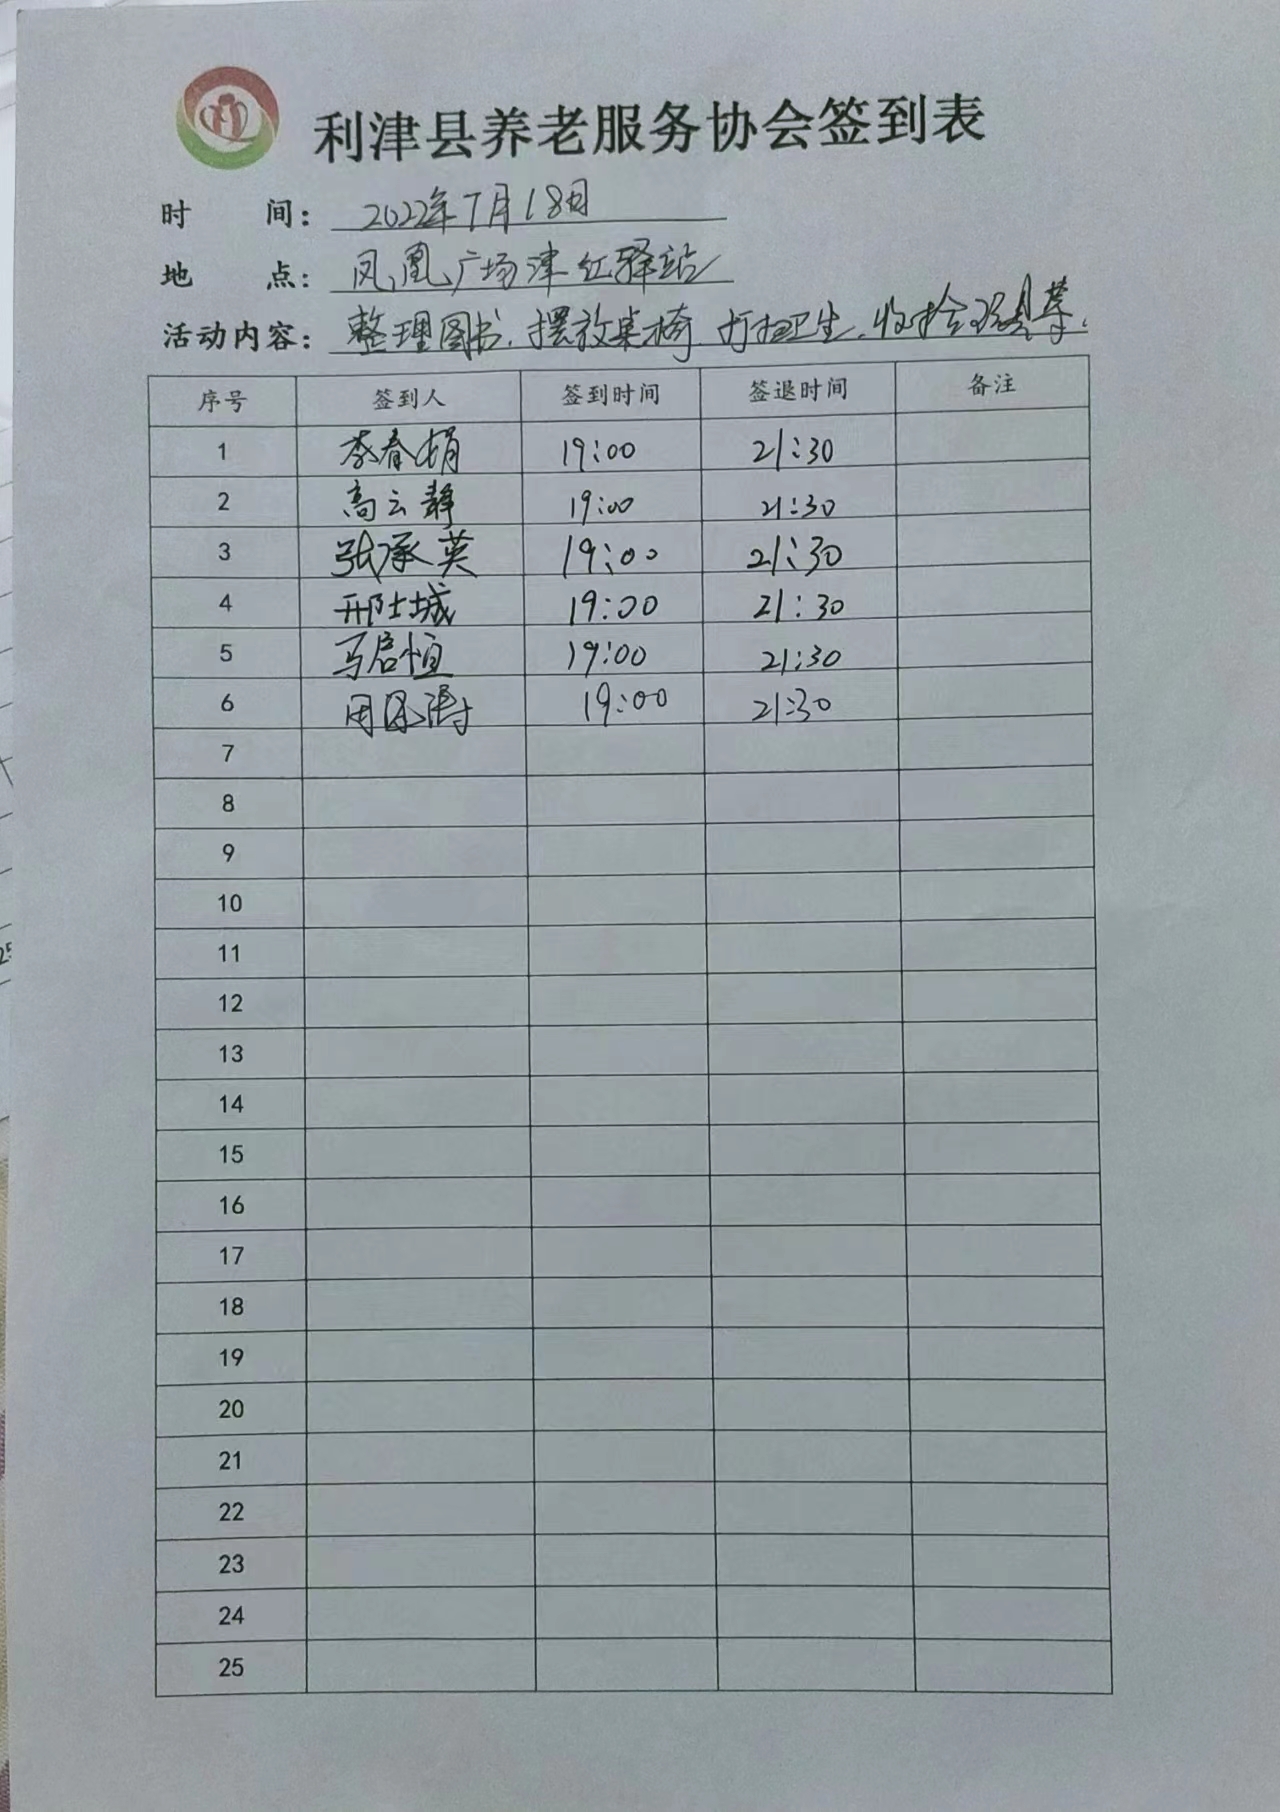 利津县养老服务协会签到表
时 间: 2022年7月18日
地 点: 凤凰广场津红驿站
活动内容: 整理图书、摆放桌椅、打扫卫生、收拾玩具等.
序号 签到人 签到时间 签退时间 备注
1 李春娟 19:00 21:30
2 高云静 19:00 21:30
3 张承英 19:00 21:30
4 邢士城 19:00 21:30
5 马启恒 19:00 21:30
6 周 19:00 21:30
7
8
9
10
11
12
13
14
15
16
17
18
19
20
21
22
23
24
25